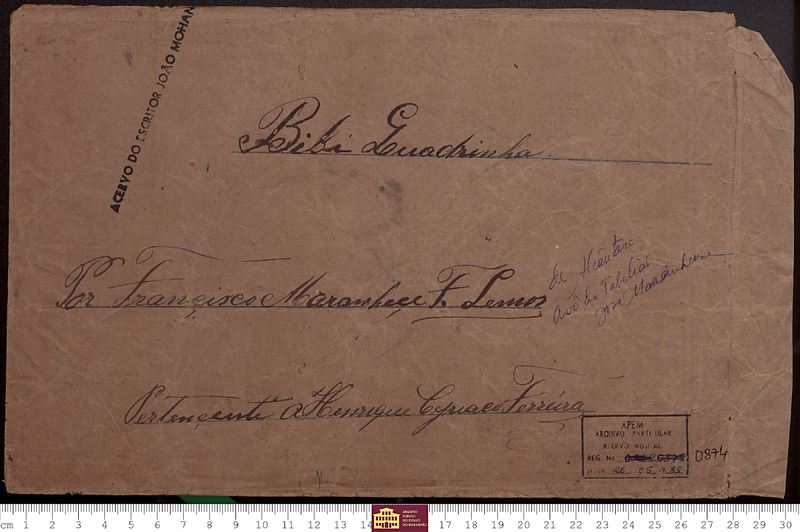 ACERVO DO ESCRITOR JOÃO MOHAN
Bibi Quadrinha
Por Francisco Maranhece F. Lemos
de Alcântara
avô do Tabelião
José Maranhense
Pertencente a Henrique Cyriaco Ferreira
APEM
ARQUIVO PARTICULAR
ACERVO MUSICAL
REG. No 0874
26. 05. 1988
cm 1 2 3 4 5 6 7 8 9 10 11 12 13 14 17 18 19 20 21 22 23 24 25 26 27 28 29 30
ARQUIVO
PÚBLICO
DO ESTADO
DO MARANHÃO